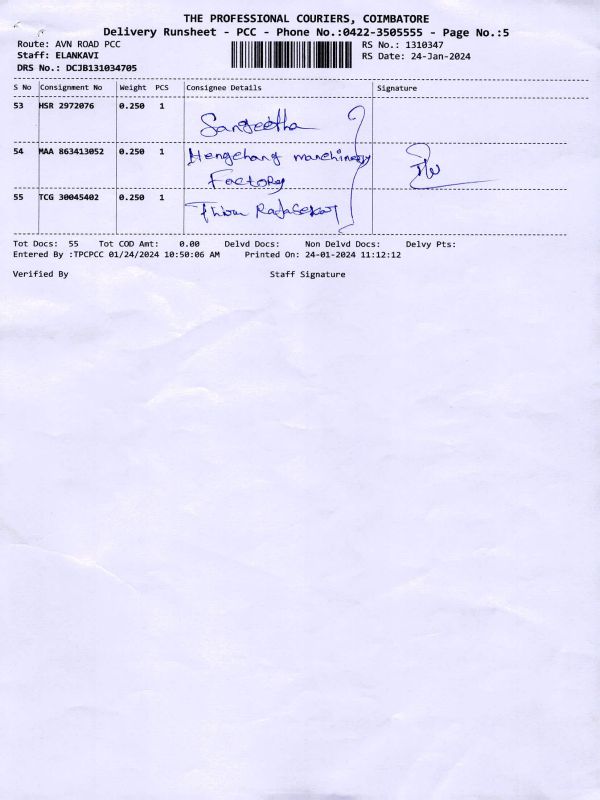 THE PROFESSIONAL COURIERS, COIMBATORE
Delivery Runsheet - PCC - Phone No.:0422-3505555 - Page No.:5
Route: AVN ROAD PCC RS No.: 1310347
Staff: ELANKAVI RS Date: 24-Jan-2024
DRS No.: DCJB131034705
S No Consignment No Weight PCS Consignee Details Signature
53 HSR 2972076 0.250 1 Sangeetha
54 MAA 863413052 0.250 1 Hengchang manchinery
Factory
55 TCG 30045402 0.250 1 Rajasekar
Tot Docs: 55 Tot COD Amt: 0.00 Delvd Docs: Non Delvd Docs: Delvy Pts:
Entered By :TPCPCC 01/24/2024 10:50:06 AM Printed On: 24-01-2024 11:12:12
Verified By Staff Signature